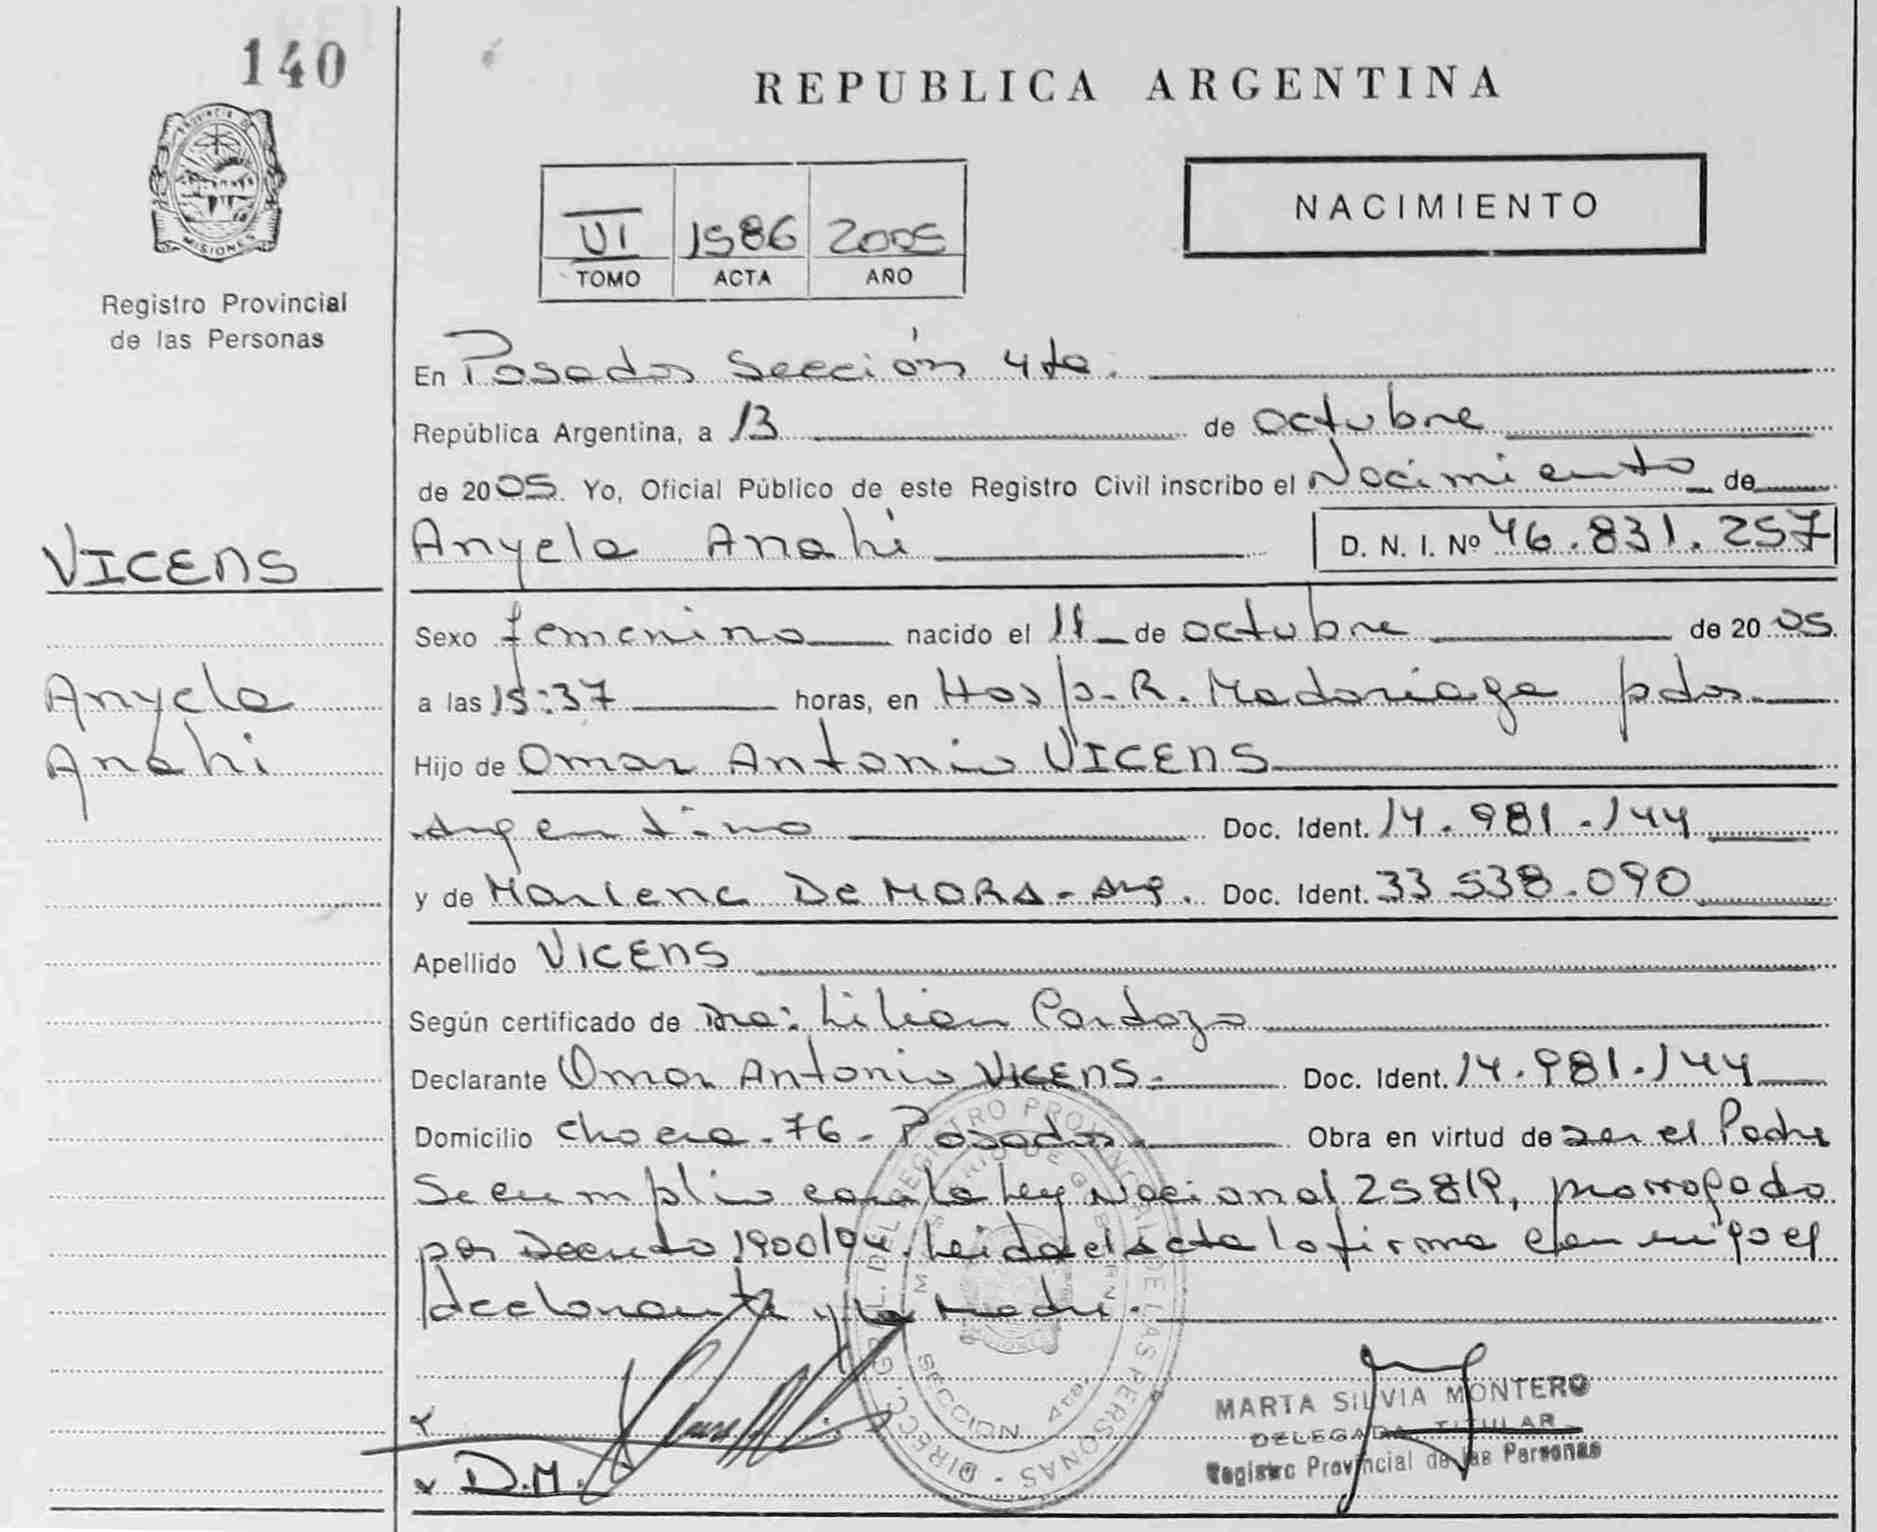 140
REPUBLICA ARGENTINA
PROVINCIA DE
MISIONES
Registro Provincial
de las Personas
NACIMIENTO
VI 1586 2005
TOMO ACTA AÑO
En Posadas Sección 4ta.
República Argentina, a 13 de octubre
de 2005. Yo, Oficial Público de este Registro Civil inscribo el Nacimiento de
VICENS
Anyela Anahi D. N. I. Nº 46.831.257
Sexo femenino nacido el 11 de octubre de 2005
Anyela
a las 15:37 horas, en Hosp. R. Madariaga pdas.
Anahi
Hijo de Omar Antonio VICENS
Argentino Doc. Ident. 14.981.144
y de Marlene De MORA - Arg. Doc. Ident. 33.538.090
Apellido VICENS
Según certificado de Dra: Lilian Cardozo
Declarante Omar Antonio VICENS. Doc. Ident. 14.981.144
Domicilio chacra - 76 - Posadas. Obra en virtud de ser el Padre
Se cumplio con la Ley Nacional 25819, prorrogado
por Decreto 1900/04. Leida el acta la firma conmigo el
declarante y la Madre.
DIRECC. GRAL. DEL REGISTRO PROVINCIAL DE LAS PERSONAS
SECCION 4ta.
MARTA SILVIA MONTERO
DELEGADA TITULAR
Registro Provincial de las Personas
D.M.